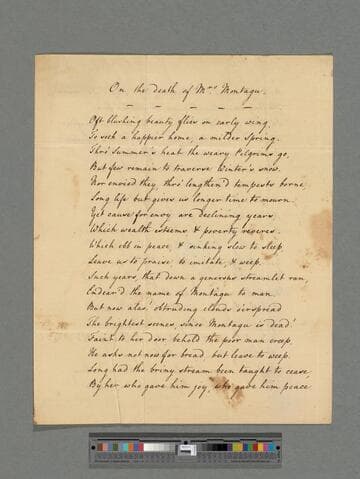 On the death of Mrs. Montagu.
Oft blushing beauty flies on early wing
To seek a happier home, a milder Spring.
Thro' Summer's heat the weary Pilgrims go,
But few remain to traverse Winter's snow.
Nor envied they, thro' lengthen'd tempests borne,
Long life but gives us longer time to mourn.
Yet cause for envy are declining years,
Which wealth esteems & poverty reveres.
Which ebb in peace, & sinking slow to sleep
Leave us to praise, to imitate, & weep.
Such years, that down a generous streamlet ran,
Endear'd the name of Montagu to man.
But now alas! obtruding clouds o'erspread
The brightest scenes, since Montagu is dead!
Faint to her door behold the poor man creep,
He asks not now for bread, but leave to weep.
Long had the briny stream been taught to cease,
By her who gave him joy, who gave him peace.